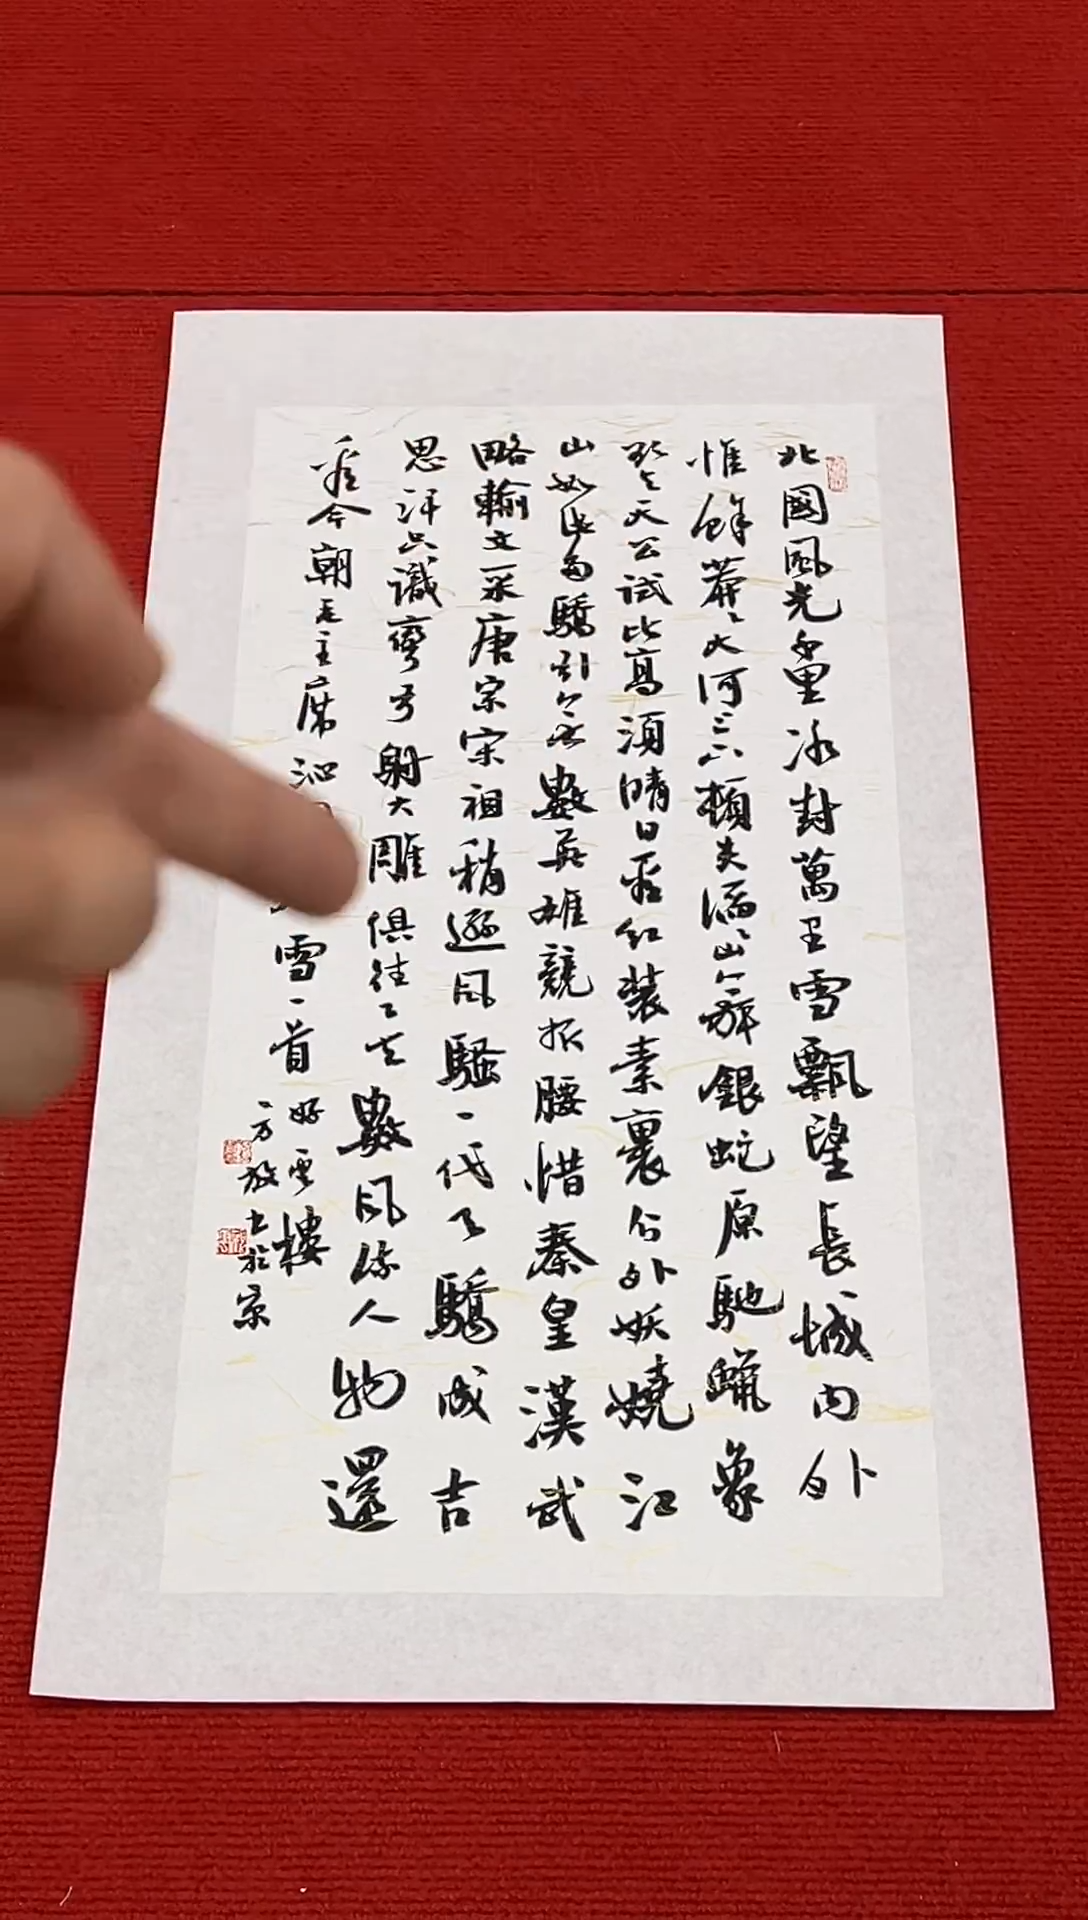 北國風光千里冰封萬里雪飄望長城內外
惟餘莽莽大河上下頓失滔滔山舞銀蛇原馳蠟象
欲與天公試比高須晴日看红装素裹分外妖嬈江
山如此多驕引無數英雄競折腰惜秦皇漢武
略輸文采唐宗宋祖稍遜風騷一代天驕成吉
思汗只識彎弓射大雕俱往矣數風流人物還
看今朝毛主席沁雪一首好雲樓
方放书於京